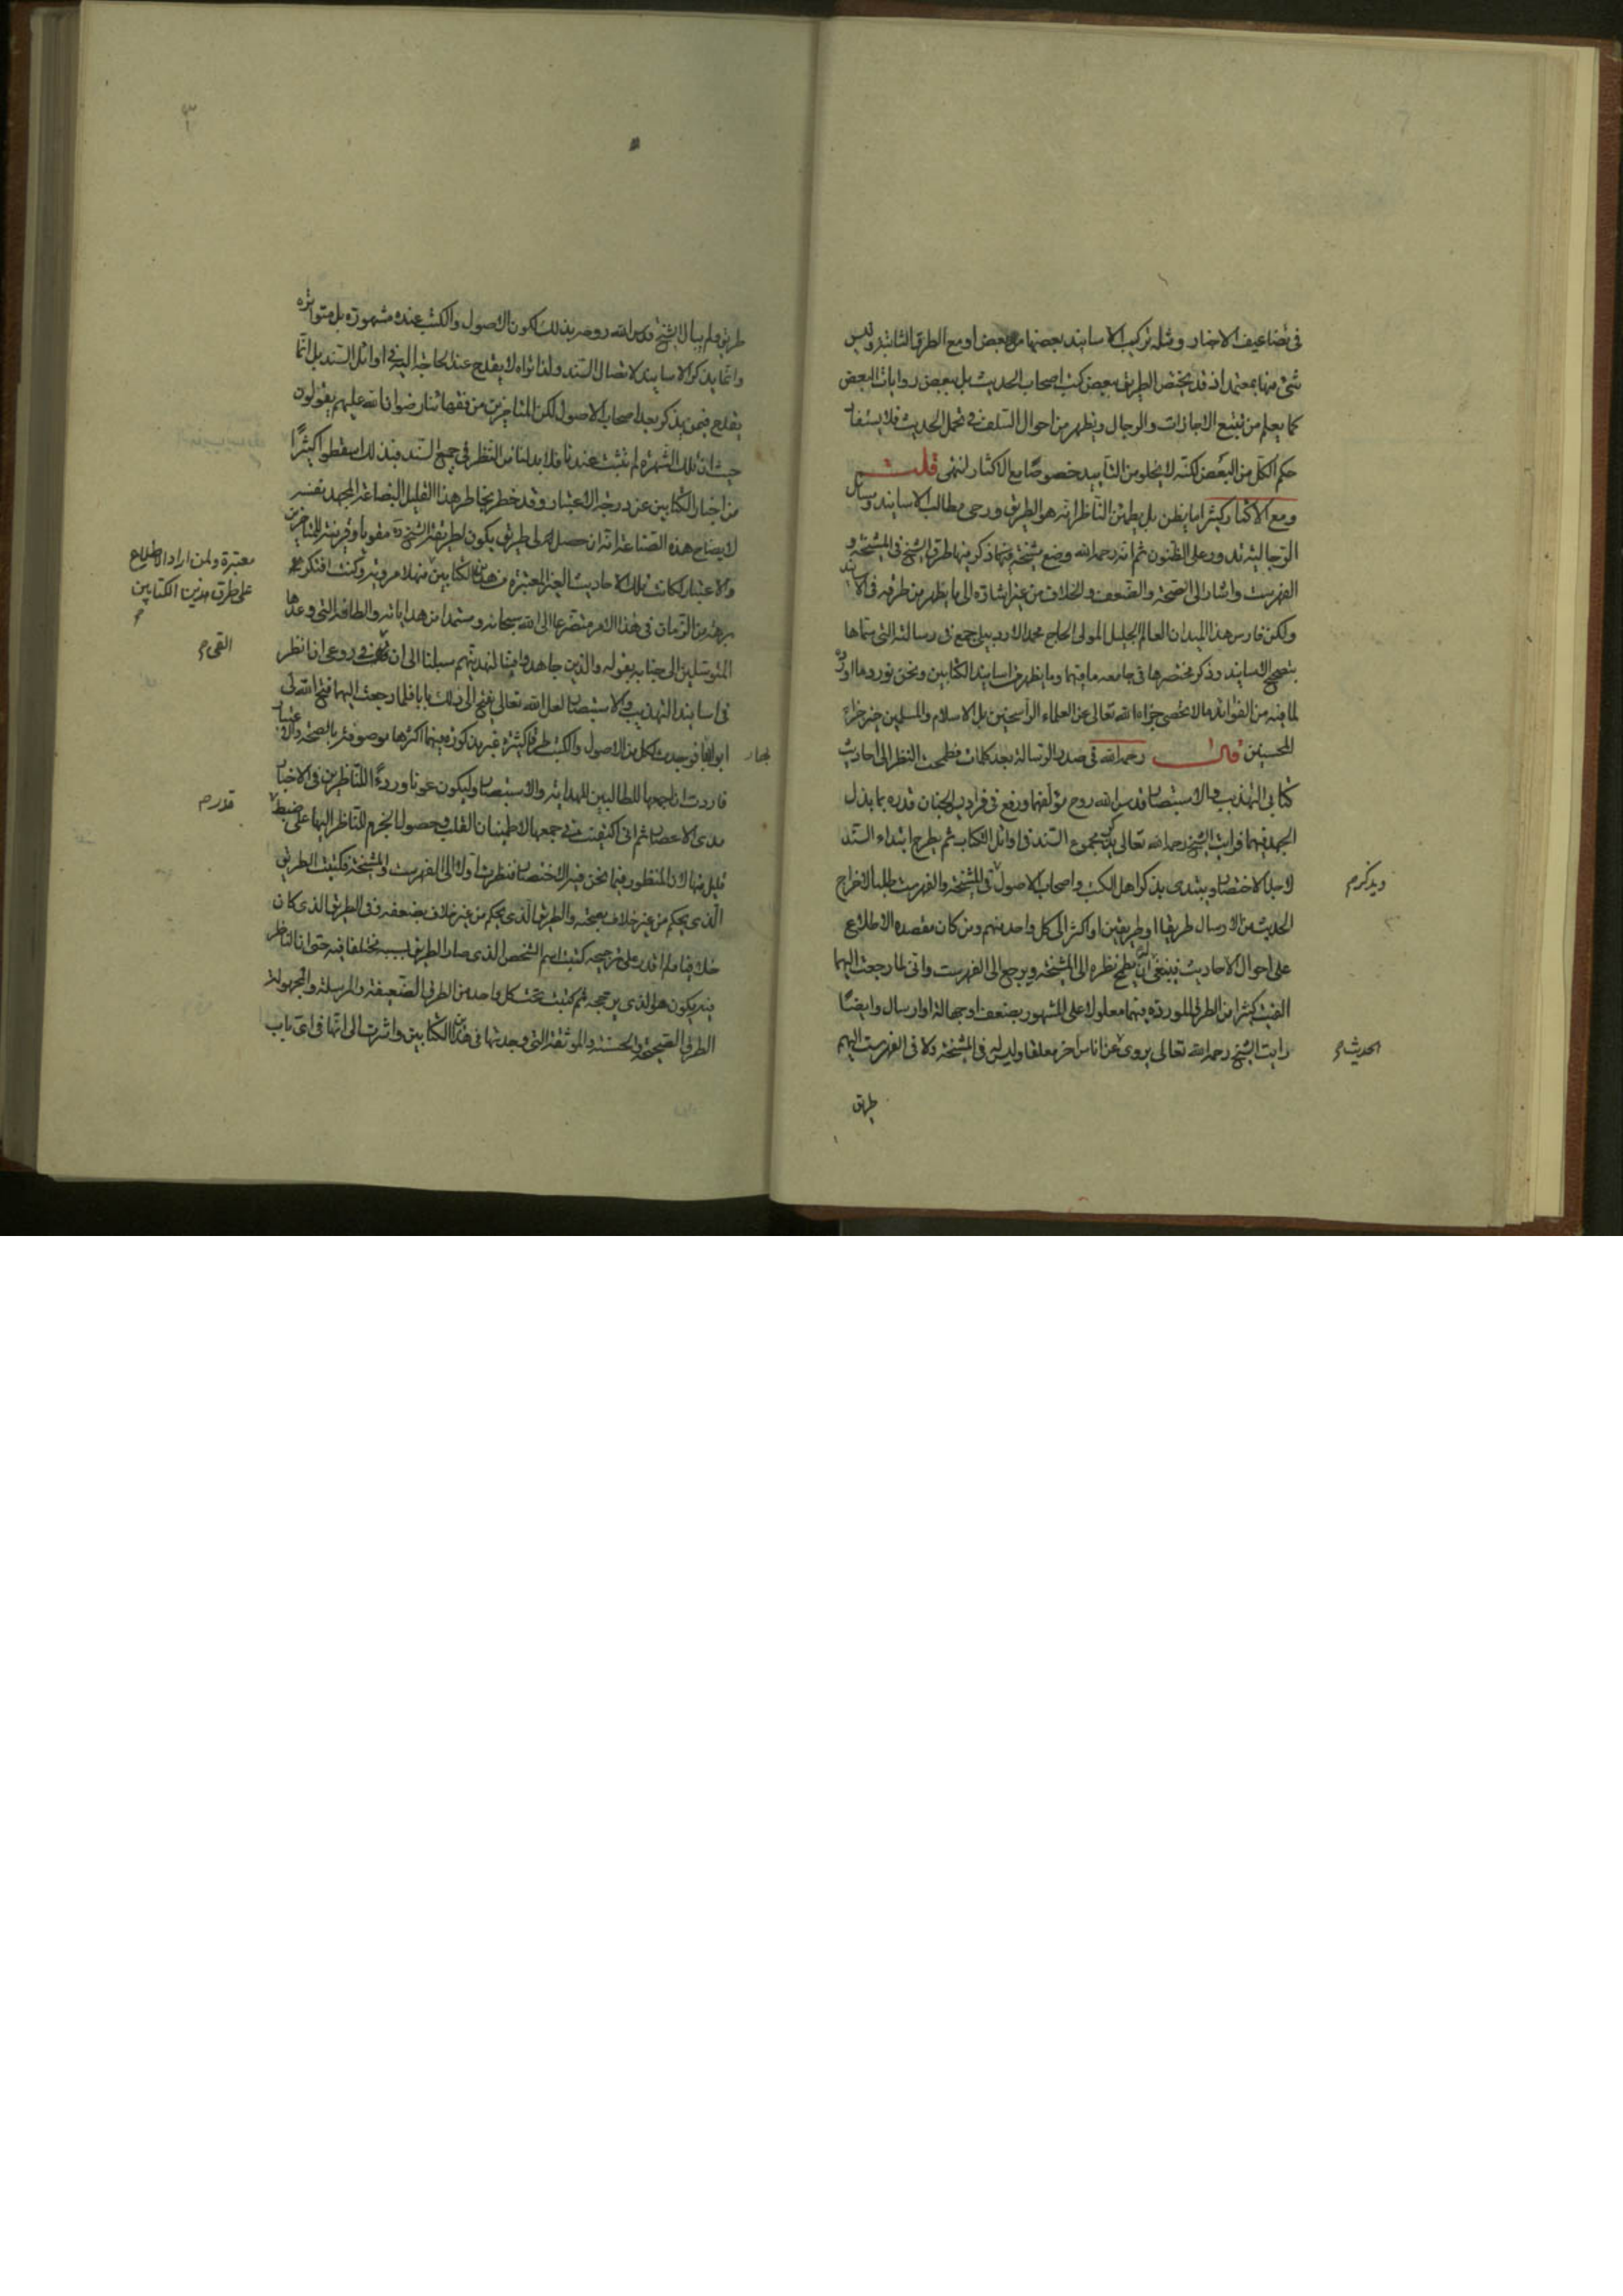 في تضاعيف الاخبار ومثله تركيب الاسانيد بعضها مع بعض او مع الطرق الثابتة وليس
شئ منها بمعتمد اذ قد يختص الطريق ببعض كتب اصحاب الحديث بل ببعض روايات البعض
كما يعلم من تتبع الاجازات والرجال ويظهر من احوال السلف في تحمل الحديث فلا يستفاد
حكم الكل من البعض لكنه لا يخلو من التأييد خصوصا مع الاكثار انتهى قلت
ومع الاكثار كثيرا ما يظن بل يطمئن الناظر انه هو الطريق ورحى مطالب الاسانيد ومسائل
الرجالية تدور على الظنون ثم انه رحمه الله وضع مشيخة فيها ذكر فيها طرق الشيخ في المشيخة و
الفهرست واشار الى الصحة والضعف والخلاف من غير اشارة الى ما يظهر من طرقه في الاسانيد
ولكن فارس هذا الميدان العالم الجليل المولى الحاج محمد الاردبيلي جمع في رسالته التي سماها
بتصحيح الاسانيد وذكر مختصرها في جامعه ما فيهما وما يظهر من اسانيد الكتابين ونحن نورد ما اورده
لما فيه من الفوائد ما لا تحصى جزاه الله تعالى عن العلماء الراسخين بل الاسلام والمسلمين خير جزاء
المحسنين قال رحمه الله في صدر الرسالة بعد كلمات فطمحت النظر الى احاديث
كتابي التهذيب والاستبصار قدس الله روح مؤلفهما ورفع في فراديس الجنان قدره بما بذل
الجهد فيهما فرايت الشيخ رحمه الله تعالى يذكر مجموع السند في اوائل الكتاب ثم يطرح ابتداء السند
لاجل الاختصار ويبتدى بذكر اهل الكتب واصحاب الاصول في المشيخة والفهرست طلبا لاخراج
ويذكر م
الحديث من الارسال طريقا او طريقين او اكثر الى كل واحد منهم ومن كان مقصده الاطلاع
على احوال الاحاديث فينبغي ان يطمح نظره الى المشيخة ويرجع الى الفهرست واني لما رجعت اليهما
الفيت كثيرا من الطرق الموردة فيهما معلولا على المشهور بضعف او جهالة او ارسال وايضا
رايت الشيخ رحمه الله تعالى يروى عن اناس اخر معلقا وليس له في المشيخة ولا في الفهرست اليهم
الحديث م
طريق
طريق فلم يبال الشيخ قدس الله روحه بذلك لكون الاصول والكتب عنده مشهورة بل متواترة
وانما يذكر الاسانيد لاتصال السند ولذا تراه لا يقدح عند الحاجة اليه في اوائل السند بل انما
يقدح فيمن يذكر بعد اصحاب الاصول لكن المتاخرين من فقهائنا رضوان الله عليهم يقولون
حيث ان تلك الشهرة لم تثبت عندنا فلا بد لنا من النظر في جميع السند فبذلك اسقطوا كثيرا
من اخبار الكتابين عن درجة الاعتبار وقد خطر بخاطر هذا القليل البضاعة المجهد نفسه
لايضاح هذه الصناعة انه ان حصل لى طريق يكون لطريقة الشيخ ره مقويا وقرينة للمتاخرين
والاعتبار لكانت تلك الاحاديث الغير المعتبرة من هذين الكتابين
معتبرة ولمن اراد الاطلاع
على طرق هذين الكتابين
م
برهة من الزمان في هذا الامر متضرعا الى الله سبحانه ومستمدا من هداياته والطافه التي وعدها
المتوسلين الى جنابه بقوله والذين جاهدوا فينا لنهدينهم سبلنا الى ان في روعى ان انظر
القى م
في اسانيد التهذيب والاستبصار لعل الله تعالى يفتح الى ذلك بابا فلما رجعت اليهما فتح الله لى
ابوابها فوجدت لكل من الاصول والكتب طرقا كثيرة غير مذكورة فيهما اكثرها موصوفة بالصحة والاعتبار
فاردت ان اجمعها للطالبين للهداية والاستبصار وليكون عونا وردءا للناظرين في الاخبار
مدى الاعصار ثم اني اكتفيت في جمعها لاطمينان القلب وحصول الجزم للناظر اليها على ضبط
قدر م
قليل منها لان المنظور فيما نحن فيه الاختصار فنظرت اولا الى الفهرست والمشيخة فكتبت الطريق
الذى يحكم من غير خلاف بصحته والطريق الذى يحكم من غير خلاف بضعفه وفي الطريق الذى كان
خلافيا ولم اقدر على ترجيحه كتبت اسم الشخص الذى صار الطريق بسببه مختلفا فيه حتى ان الناظر
فيه يكون هو الذى يرجحه ثم كتبت تحت كل واحد من الطرق الضعيفة والمرسلة والمجهولة
الطرق الصحيحة والحسنة والموثقة التي وجدتها في هذين الكتابين واشرت الى انها في اى باب